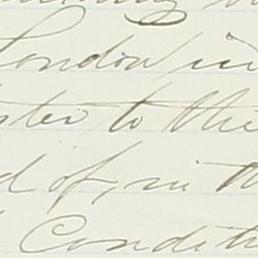 London in
ster to this
d of, in th
Condit